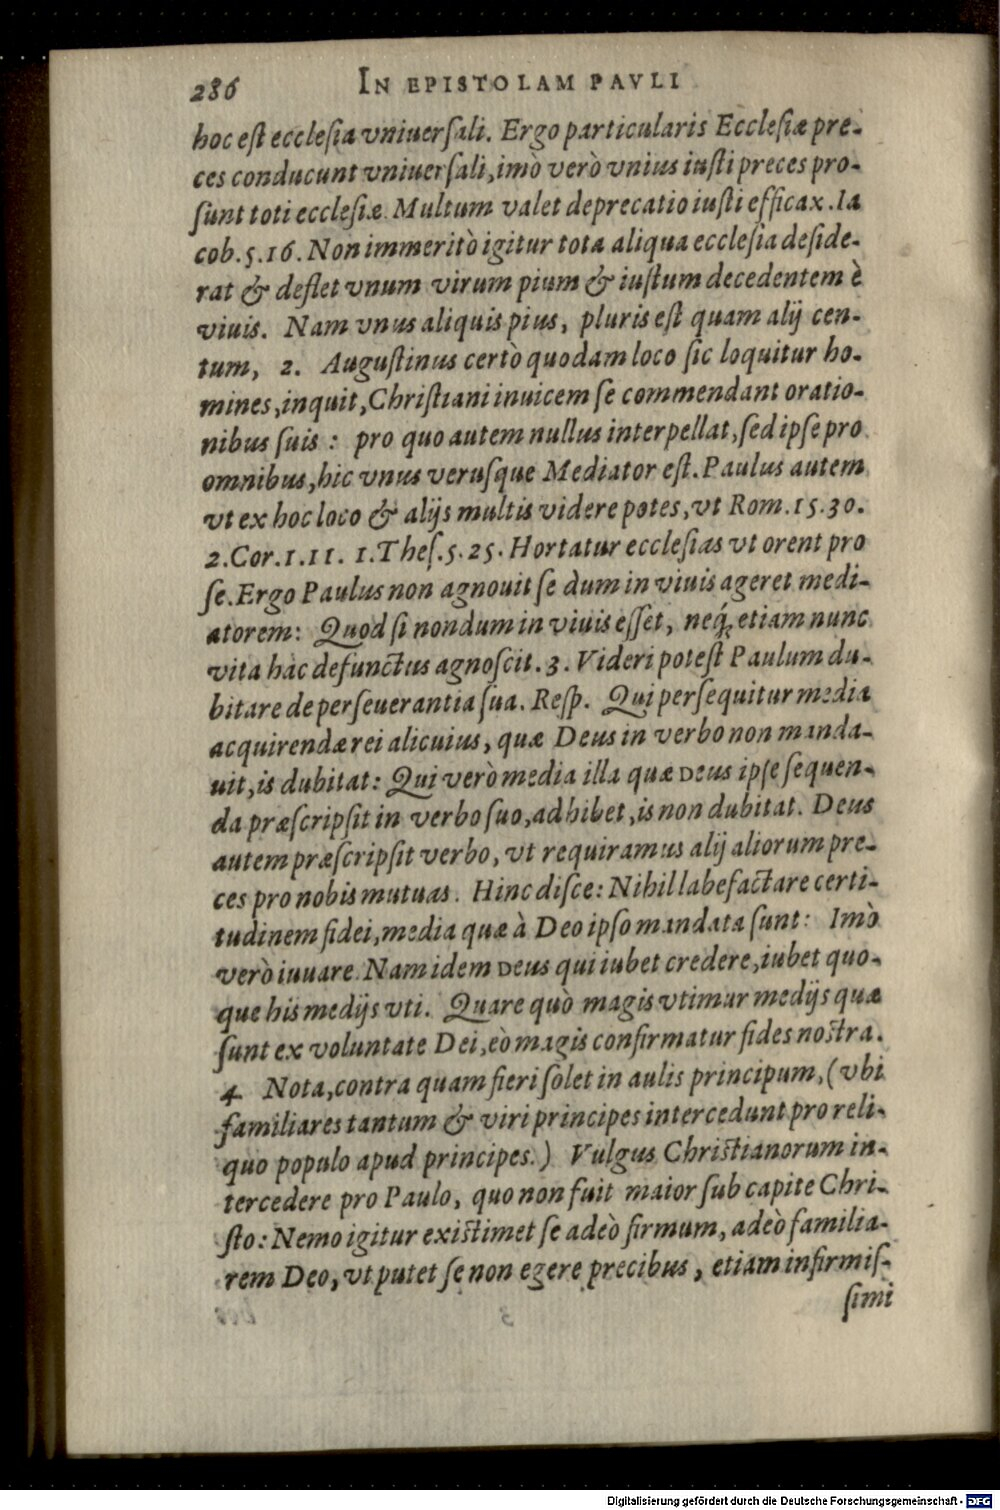 286 IN EPISTOLAM PAVLI
hoc est ecclesia vniuersali. Ergo particularis Ecclesiæ pre-
ces conducunt vniuersali, imò verò vnius iusti preces pro-
sunt toti ecclesiæ. Multum valet deprecatio iusti efficax. Ia
cob. 5. 16. Non immeritò igitur tota aliqua ecclesia deside-
rat & deflet vnum virum pium & iustum decedentem è
viuis. Nam vnus aliquis pius, pluris est quam alij cen-
tum, 2. Augustinus certò quodam loco sic loquitur ho-
mines, inquit, Christiani inuicem se commendant oratio-
nibus suis : pro quo autem nullus interpellat, sed ipse pro
omnibus, hic vnus verusque Mediator est. Paulus autem
vt ex hoc loco & alijs multis videre potes, vt Rom. 15. 30.
2. Cor. 1. 11. 1. Thes. 5. 25. Hortatur ecclesias vt orent pro
se. Ergo Paulus non agnouit se dum in viuis ageret medi-
atorem: Quod si nondum in viuis esset, neq́; etiam nunc
vita hac defunctus agnoscit. 3. Videri potest Paulum du-
bitare de perseuerantia sua. Resp. Qui persequitur media
acquirendæ rei alicuius, quæ Deus in verbo non manda-
uit, is dubitat: Qui verò media illa quæ Deus ipse sequen-
da præscripsit in verbo suo, adhibet, is non dubitat. Deus
autem præscripsit verbo, vt requiramus alij aliorum pre-
ces pro nobis mutuas. Hinc disce: Nihil labefactare certi-
tudinem fidei, media quæ à Deo ipso mandata sunt: Imò
verò iuuare. Nam idem Deus qui iubet credere, iubet quo-
que his medijs vti. Quare quò magis vtimur medijs quæ
sunt ex voluntate Dei, eò magis confirmatur fides nostra.
4 Nota, contra quam fieri solet in aulis principum, (vbi
familiares tantum & viri principes intercedunt pro reli-
quo populo apud principes.) Vulgus Christianorum in-
tercedere pro Paulo, quo non fuit maior sub capite Chri-
sto: Nemo igitur existimet se adeò firmum, adeò familia-
rem Deo, vt putet se non egere precibus, etiam infirmis-
simi
Digitalisierung gefördert durch die Deutsche Forschungsgemeinschaft - DFG